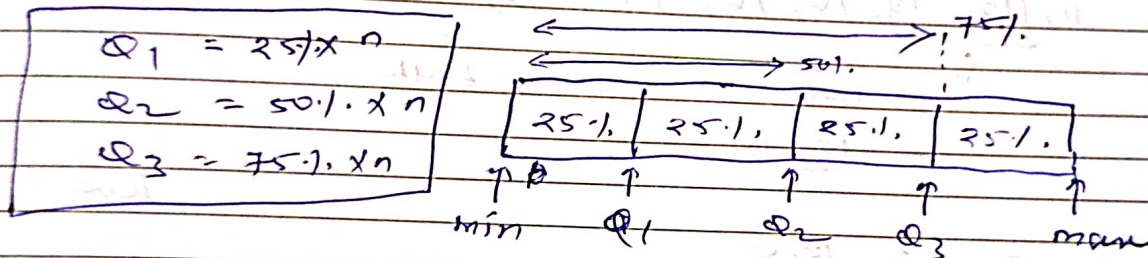 Q1 = 25% x n
Q2 = 50% x n
Q3 = 75% x n
75%
50%
25% 25% 25% 25%
min Q1 Q2 Q3 max